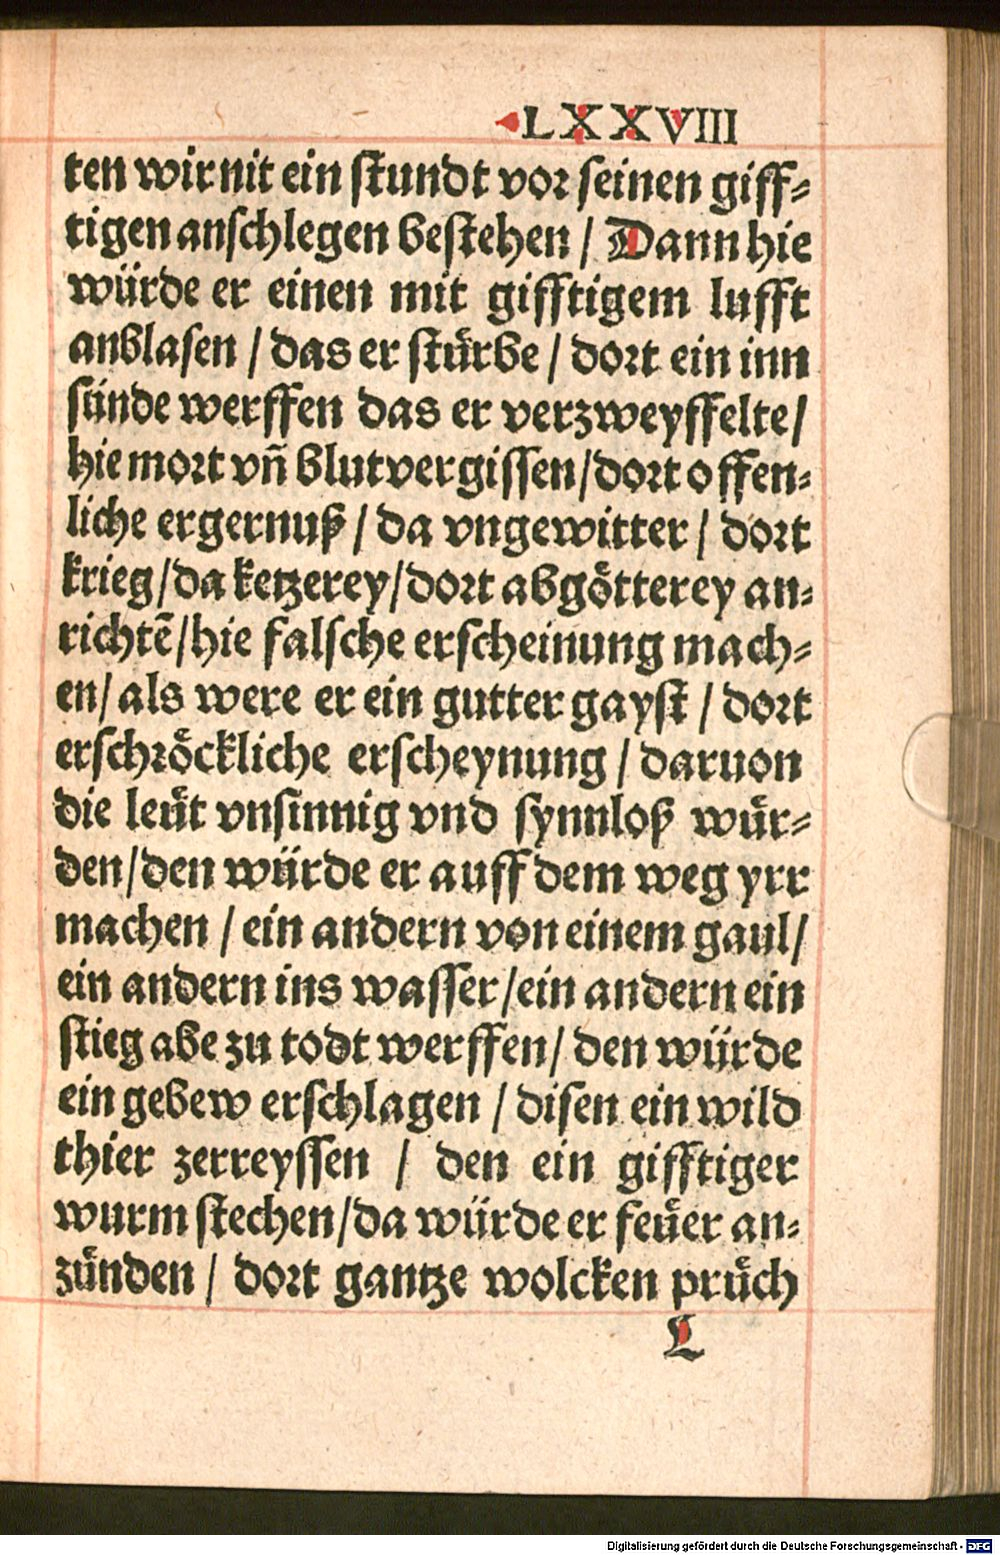 LXXVIII
ten wir nit ein stundt vor seinen giff⸗
tigen anschlegen bestehen / Dann hie
würde er einen mit gifftigem lufft
anblasen / das er stürbe / dort ein inn
sünde werffen das er verzweyffelte /
hie mort vn̄ blutvergissen / dort offen⸗
liche ergernuß / da vngewitter / dort
krieg / da ketzerey / dort abgötterey an⸗
richtē / hie falsche erscheinung mach⸗
en / als were er ein gutter gayst / dort
erschröckliche erscheynung / daruon
die leüt vnsinnig vnd synnloß wür⸗
den / den würde er auff dem weg yrr
machen / ein andern von einem gaul /
ein andern ins wasser / ein andern ein
stieg abe zu todt werffen / den würde
ein gebew erschlagen / disen ein wild
thier zerreyssen / den ein gifftiger
wurm stechen / da würde er feüer an⸗
zünden / dort gantze wolcken prüch
L
Digitalisierung gefördert durch die Deutsche Forschungsgemeinschaft - DFG